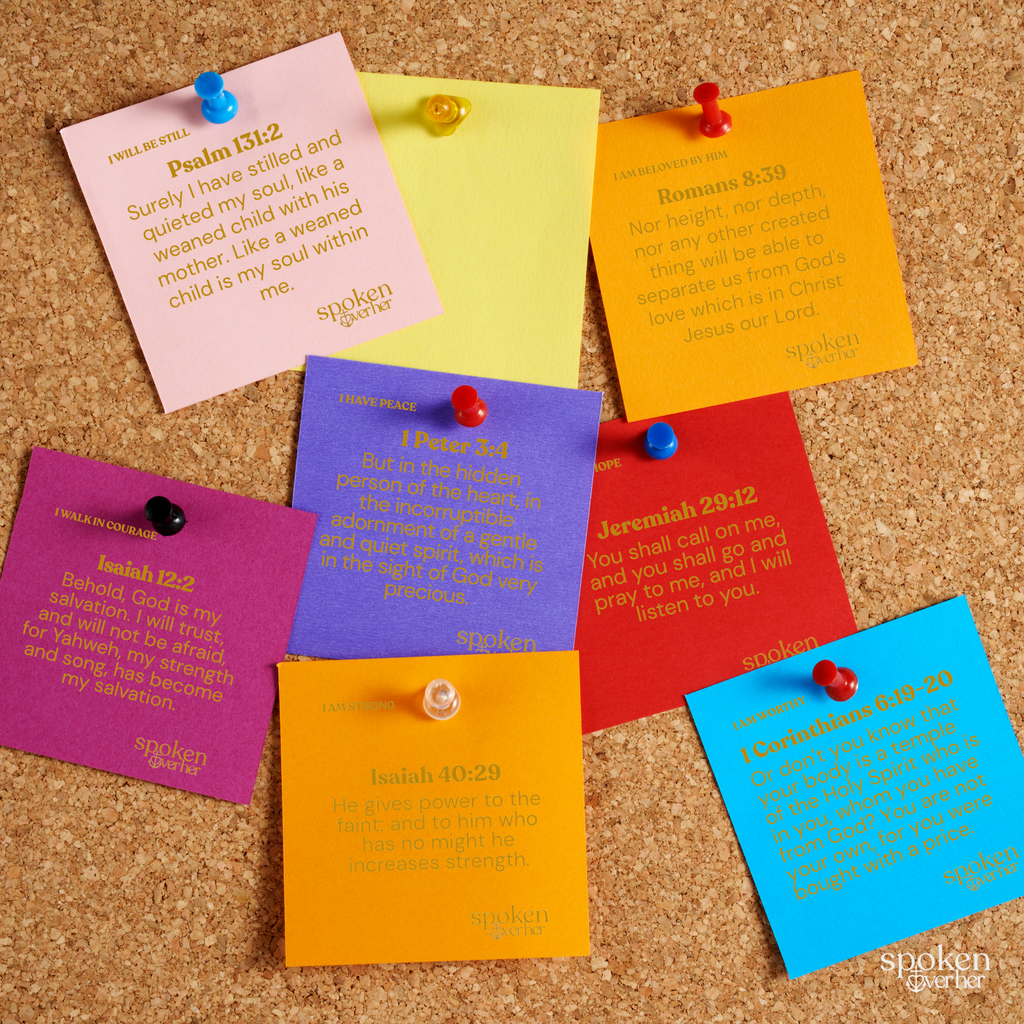 I WILL BE STILL
Psalm 131:2
Surely I have stilled and
quieted my soul, like a
weaned child with his
mother. Like a weaned
child is my soul within
me.
spoken
over her
I AM BELOVED BY HIM
Romans 8:39
Nor height, nor depth,
nor any other created
thing will be able to
separate us from God's
love which is in Christ
Jesus our Lord.
spoken
over her
I HAVE PEACE
1 Peter 3:4
But in the hidden
person of the heart, in
the incorruptible
adornment of a gentle
and quiet spirit, which is
in the sight of God very
precious.
spoken
Jeremiah 29:12
You shall call on me,
and you shall go and
pray to me, and I will
listen to you.
spoken
I WALK IN COURAGE
Isaiah 12:2
Behold, God is my
salvation. I will trust,
and will not be afraid,
for Yahweh, my strength
and song, has become
my salvation.
spoken
over her
I AM STRONG
Isaiah 40:29
He gives power to the
faint; and to him who
has no might he
increases strength.
spoken
over her
I AM WORTHY
1 Corinthians 6:19-20
Or don't you know that
your body is a temple
of the Holy Spirit who is
in you, whom you have
from God? You are not
your own, for you were
bought with a price.
spoken
over her
spoken
over her